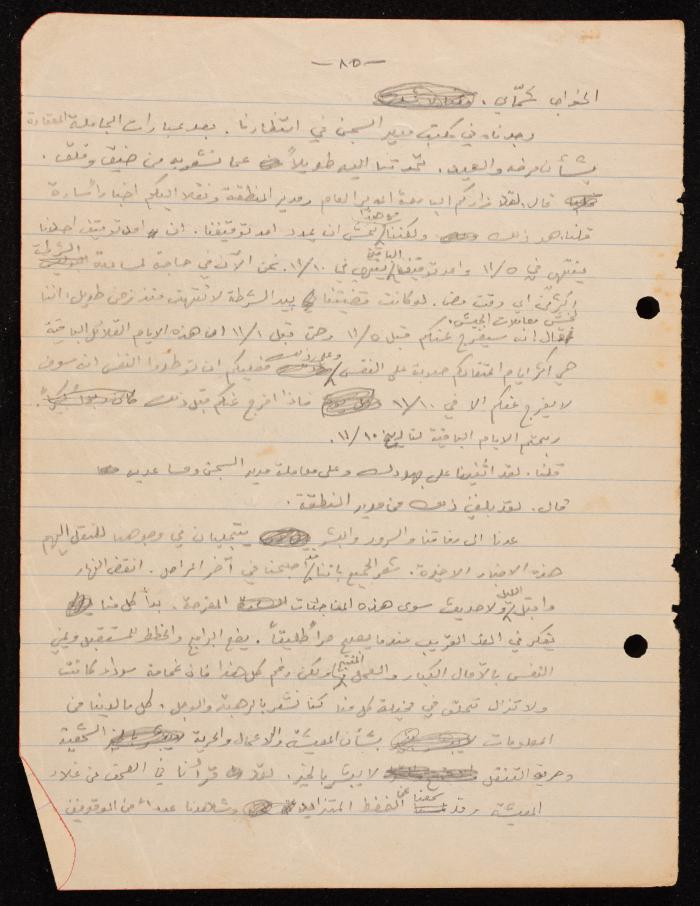 — ٨٥ —
الخواجا شماي.
وجدناه في مكتب مدير السجن في انتظارنا. بعد عبارات المجاملة المعتادة
بشأن مرضه والعيد. تحدثنا اليه طويلاً عما نشعر به من ضيق وقلق.
قال: لقد زاركم البارحة المدير العام ومدير المنطقة ونقلا اليكم اخباراً سارة
قلنا: هو ذلك ولكننا مع هذا نخشى ان يمدد امد توقيفنا. ان امد توقيف احدنا
ينتهي في ١١/٥ وامد توقيف الباقين ينتهي في ١١/١٠. نحن الآن في حاجة لمساعدة الشرطة
اكثر من اي وقت مضى. لو كانت قضيتنا بيد الشرطة لانتهت منذ زمن طويل، اننا
نخشى معاملات الجيش.
قال: انه سيفرج عنكم قبل ١١/٥ وحتى قبل ١١/١ ان هذه الايام القلائل الباقية
هي اكثر ايام اعتقالكم صعوبة على النفس وعلى ذلك فعليكم ان توطدوا النفس انه سوف
لا يفرج عنكم الا في ١١/١٠ فاذا افرج عنكم قبل ذلك
ربحتم الايام الباقية لتاريخ ١١/١٠.
قلنا: لقد اثنينا على جهودك وعلى معاملة مدير السجن ومساعديه
قال: لقد بلغني ذلك من مدير المنطقة.
عدنا الى رفاقنا والسرور والبشر يتجليان في وجوهنا لننقل اليهم
هذه الاخبار الاخيرة. شعر الجميع باننا قد اصبحنا في آخر المراحل. انقضى النهار
واقبل الليل ولا حديث سوى هذه المفاجئات المفرحة. بدأ كل منا
يفكر في الغد القريب عندما يصبح حراً طليقاً. يضع البرامج والخطط للمستقبل ويمني
النفس بالآمال الكبار والعمل المنتج ولكن رغم كل هذا فان غمامة سوداء كانت
ولا تزال تحلق في مخيلة كل منا كنا نشعر بالرهبة والوجل، كل ما لدينا من
المعلومات بشأن المعيشة والاعمال والحرية الشخصية
وحرية التنقل لا يبشر بالخير. لقد قرأنا في الصحف عن غلاء
المعيشة وقد سمعنا عن الضغط المتزايد وشاهدنا عدداً من الموقوفين